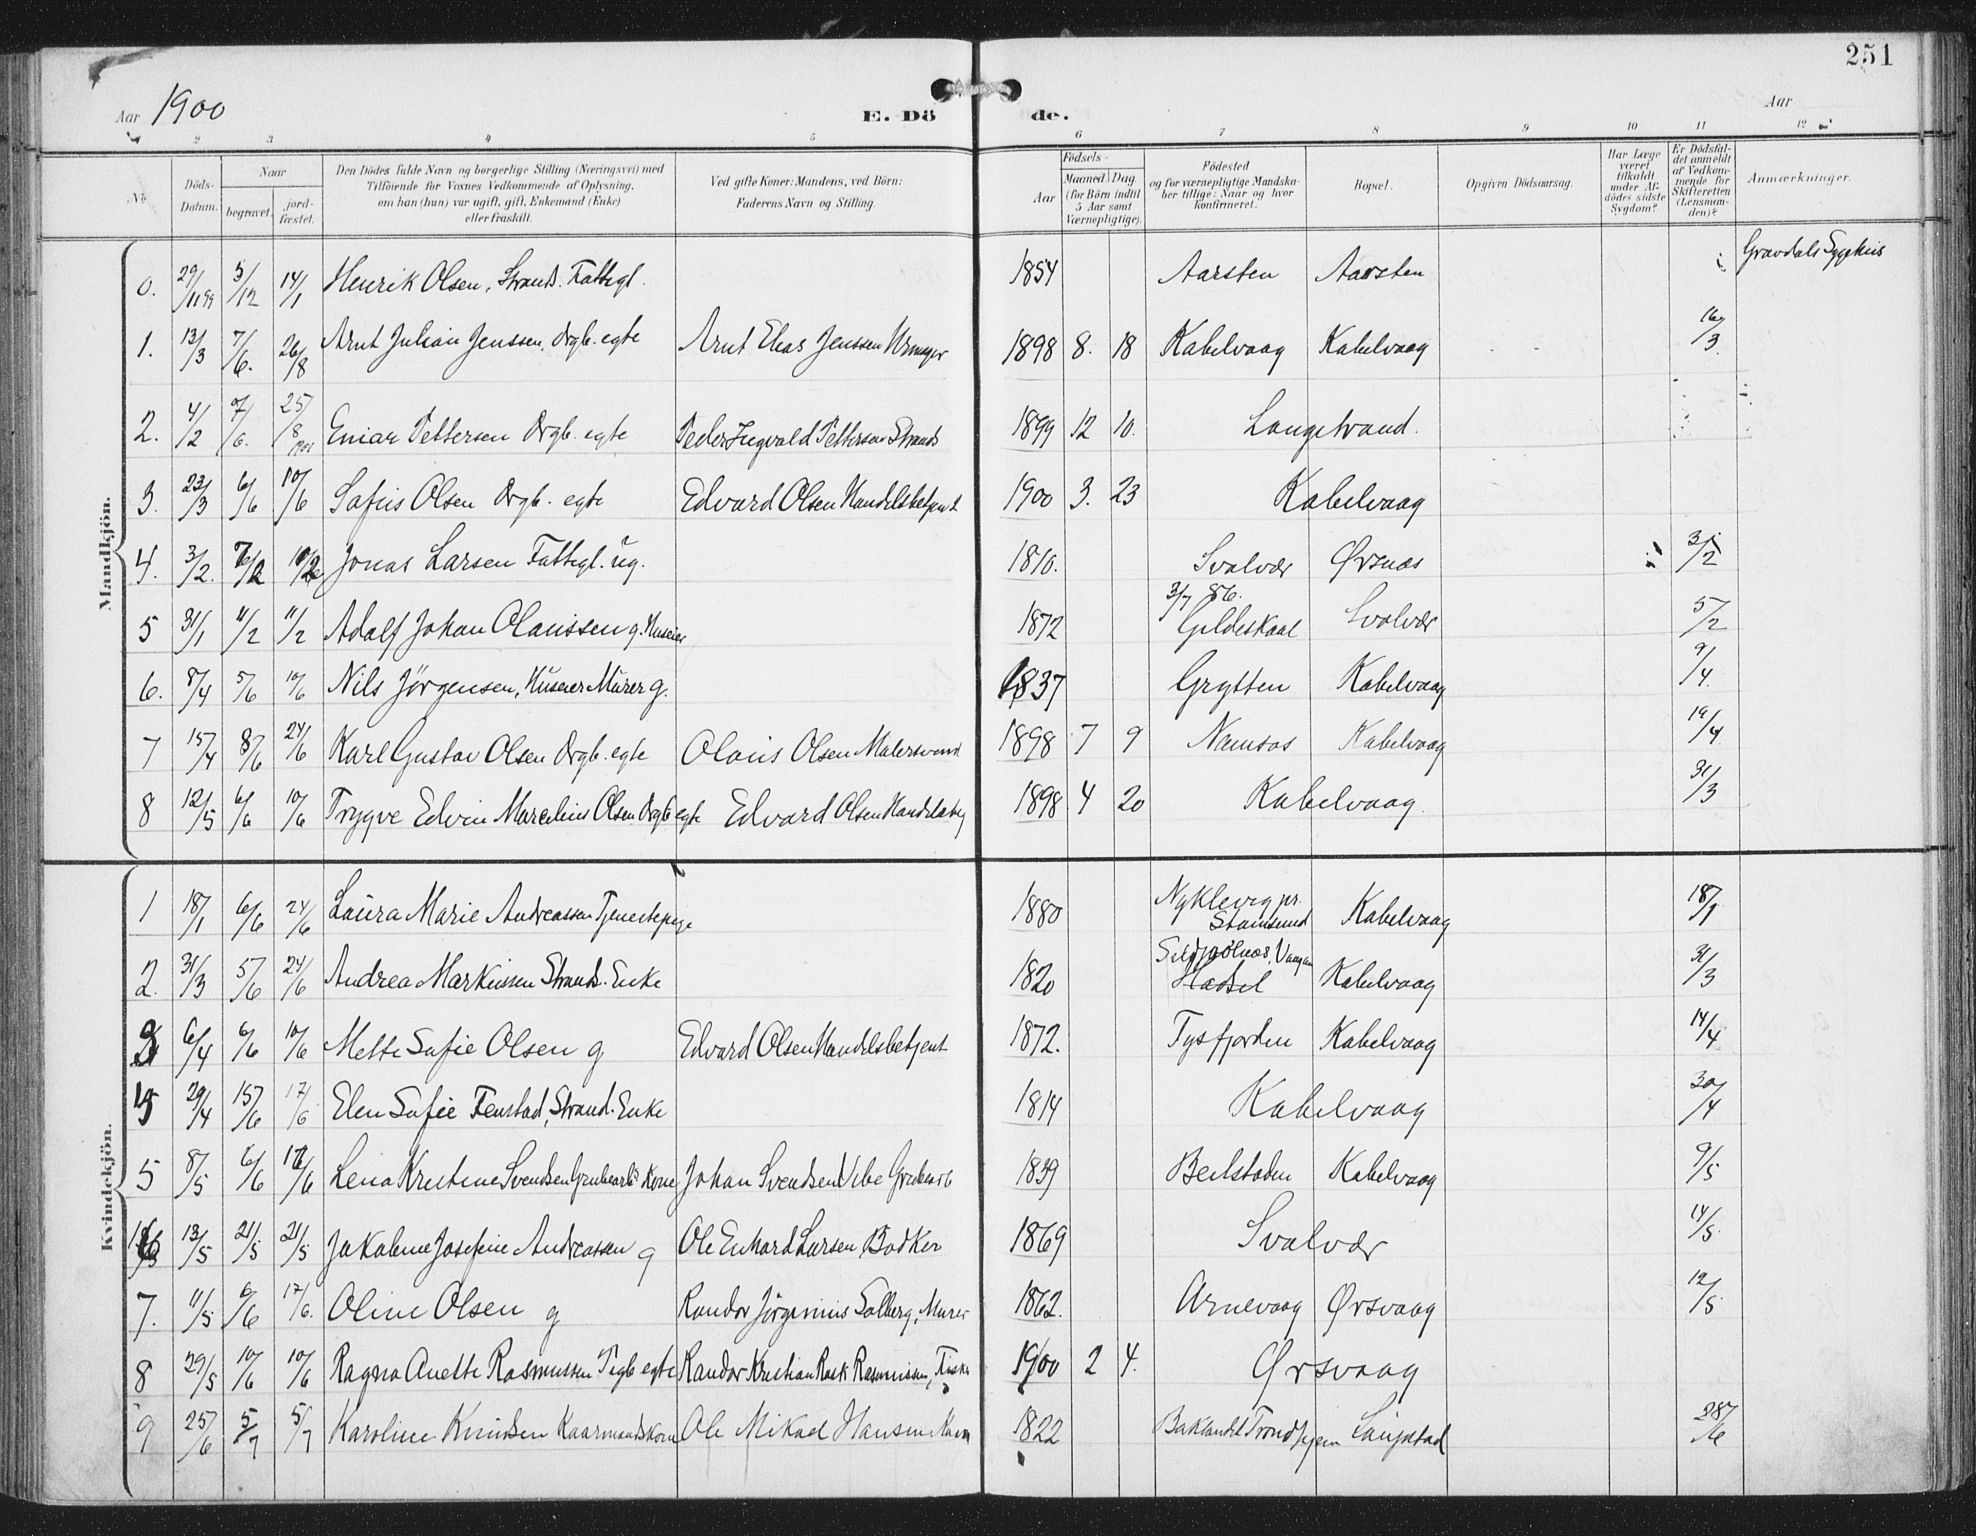 251
Aar 1900
E. Dö de.
Aar
2 3 4 5 6 7 8 9 10 11 12
No
Döds-Datum.
Naar
begravet.
jord-fæstet.
Den Dödes fulde Navn og borgerlige Stilling (Næringsvei) med
Tilföiende for Voxnes Vedkommende af Oplysning,
om han (hun) var ugift, gift, Enkemand (Enke)
eller fraskilt.
Ved gifte Koner: Mandens, ved Börn:
Faderens Navn og Stilling.
Födsels-
Aar
Maaned Dag
(for Börn indtil
5 Aar samt
Værnepligtige).
Födested
og for værnepligtige Mandska-
ber tillige: Naar og hvor
konfirmeret.
Bopæl.
Opgiven Dödsaarsag.
Har Læge
været
tilkaldt
under Af-
dödes sidste
Sygdom?
Er Dödsfal-
det anmeldt
af Vedkom-
mende for
Skifteretten
(Lensman-
den)?
Anmærkninger.
Mandkjön.
0. 29/11 99 5/12 14/1 Henrik Olsen, Strands. Fattigl. 1854 Aarsten Aarsten Gravdals Sygehus
1. 13/3 7/6. 26/8 Arnt Julian Jenssen, Drgb. egte Arnt Elias Jenssen Urmager 1898 8. 18 Kabelvaag Kabelvaag 16/3.
2. 4/2 7/6. 25/8 1901 Einar Pettersen Drgb. egte Peder Ingvald Pettersen Strands 1899 12 10. Langstrand.
3. 23/3 6/6 10/6 Sofus Olsen Drgb. egte Edvard Olsen Handelsbetjent 1900 3. 23 Kabelvaag
4. 3/2. 7/2 10/2 Jonas Larsen Fattigl. ug. 1810. Svolvær Ørsnæs 3/2
5 31/1 11/2 11/2 Adolf Johan Olaussen g. Huseier 1872 3/7 86. Gildeskaal Svolvær 5/2
6. 8/4 5/6 10/6 Nils Jörgensen, Huseier Murer g. 1837 Grytten Kabelvaag 9/4.
7 15/4 8/6 24/6 Karl Gustav Olsen Drgb. egte Olaus Olsen Malersvend 1898 7 9 Namsos Kabelvaag 19/4
8 12/5 6/6 10/6 Trygve Edvin Marelius Olsen Drgb egte Edvard Olsen Handelsbetj 1898 4 20 Kabelvaag. 31/3
Kvindekjön.
1 18/1 6/6 24/6 Laura Marie Andreassen Tjenestepige 1880 Nyklevig pr. Stamsund Kabelvaag 18/1
2. 31/3 5/6 24/6 Andrea Markussen Strands. Enke 1820 Sildpolnæs, Vaagan Hadsel Kabelvaag 31/3
3 6/4 6/6 10/6 Mette Sofie Olsen g Edvard Olsen Handelsbetjent 1872. Tysfjorden Kabelvaag 14/4
29/4 15/6 17/6 Elen Sofie Fenstad, Strand. Enke 1814 Kabelvaag 30/4
5 8/5 6/6 17/6 Lena Kristine Svendsen Grubearb. Kone Johan Svendsen Vibe Grubearb 1839 Beitstaden Kabelvaag 9/5
6 13/5 21/5 21/5 Jakobine Josefine Andreassen g Ole Enhard Larsen Bödker 1869 Svolvær 14/5.
7. 11/5 6/6 17/6. Oline Olsen g Randor Jörginius Solberg, Murer 1862. Arnevaag Ørsvaag 12/5
8 29/5 10/6 10/6 Ragna Anette Rasmussen Pigb egte Randor Kristian Rask Rasmussen, Fisker 1900 2 4. Ørsvaag
9 25/6 5/7 5/7 Karoline Knudsen Kaarmandskone Ole Mikael Hansen Kaarm 1822 Baklandet Trondhjem Laupstad 28/6